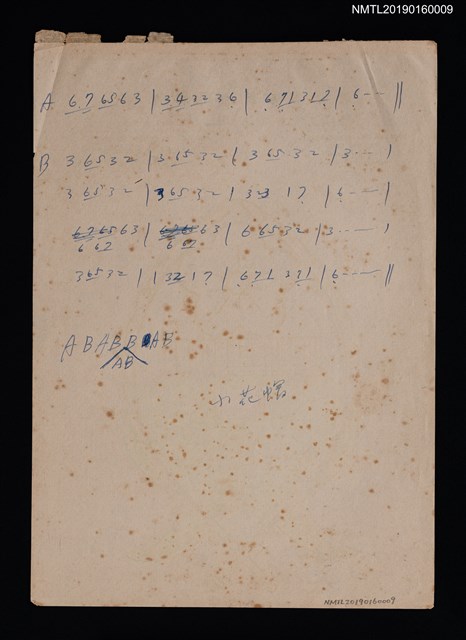 NMTL20190160009
A 6 7 6 5 6 3 | 3 4 3 2 3 6 | 6 7 1 3 1 7 | 6 - - - ||
B 3 6 5 3 2 | 3 6 5 3 2 | 3 6 5 3 2 | 3 - - - |
3 6 5 3 2 | 3 6 5 3 2 | 3 2 3 1 7 | 6 - - - |
6 3 | 6 3 | 6 6 5 3 2 | 3 - - - |
6 6 7 6 6 7
3 6 5 3 2 | 1 3 2 1 7 | 6 7 1 3 1 | 6 - - - ||
A B A B B A B
AB
小花
NMTL20190160009